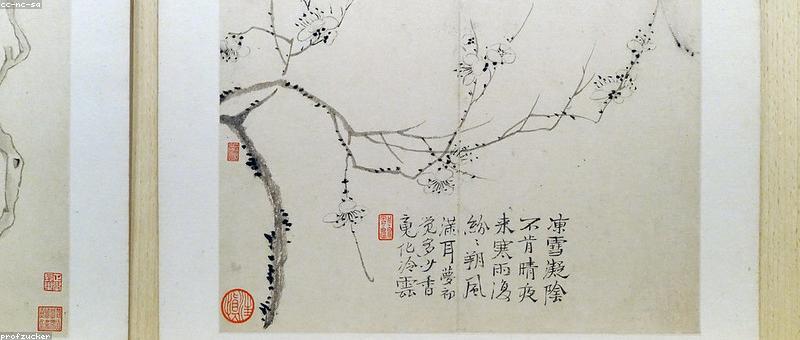 cc-nc-sa
凍雪凝陰
不肯晴夜
来寒雨復
紛〻朔風
滿耳夢初
覺多少香
魂化冷雲
profzucker